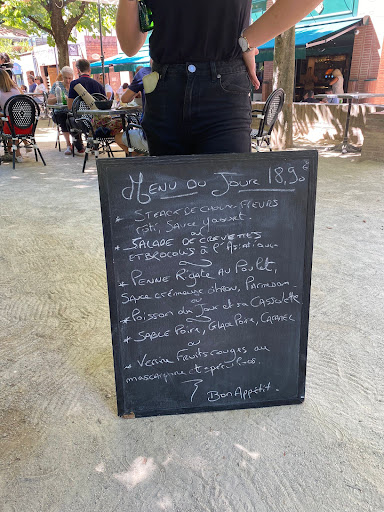 Menu du Jour 18,90
* Steack de choux Fleurs
rôti, Sauce Yaourt.
ou
* Salade de crevettes
et Brocolis à l'Asiatique
* Penne Rigate au Poulet,
Sauce crémeuse citron, Parmesan.
ou
* Poisson du Jour et sa Cassolette
* Sablé Poire, Glace Poire, Caramel
ou
* Verrine Fruits rouges au
mascarpone et spéculoos.
Bon Appétit.